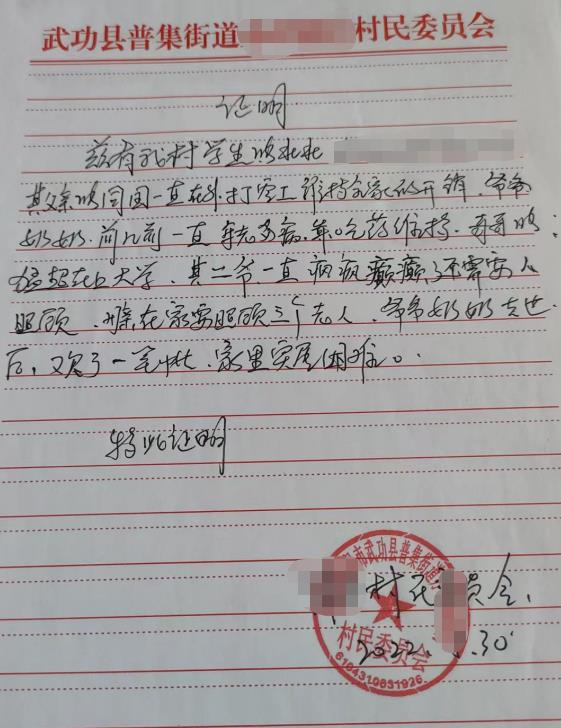 武功县普集街道 村民委员会
证明
兹有我村学生 
其父 同国一直在外打零工维持全家的开销,爷爷
奶奶,前几前一直年老多病,靠吃药维持,哥哥
在上大学,其二爷一直病病癫癫的还需要人
照顾,在家要照顾三个老人,爷爷奶奶去世
后,又欠了一笔 ,家里实属困难。
特此证明
市武功县普集街道
村民委员会
6104310631926
村 员会
2022. .30